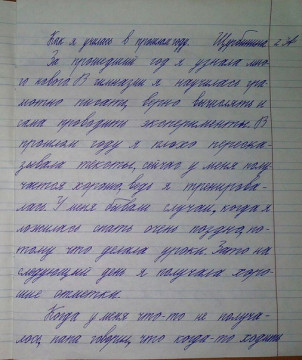 Как я училась в прошлом году. Щербинина 2 "А"
За прошедший год я узнала мно-
го нового. В гимназии я научилась гра-
мотно писать, верно вычислять и
сама проводить эксперименты. В
прошлом году я плохо переска-
зывала тексты, сейчас у меня полу-
чается хорошо, ведь я тренирова-
лась. У меня бывали случаи, когда я
ложилась спать очень поздно, по-
тому что делала уроки. Зато на
следующий день я получала хоро-
шие отметки.
Когда у меня что-то не получа-
лось, папа говорил, что когда-то ходить